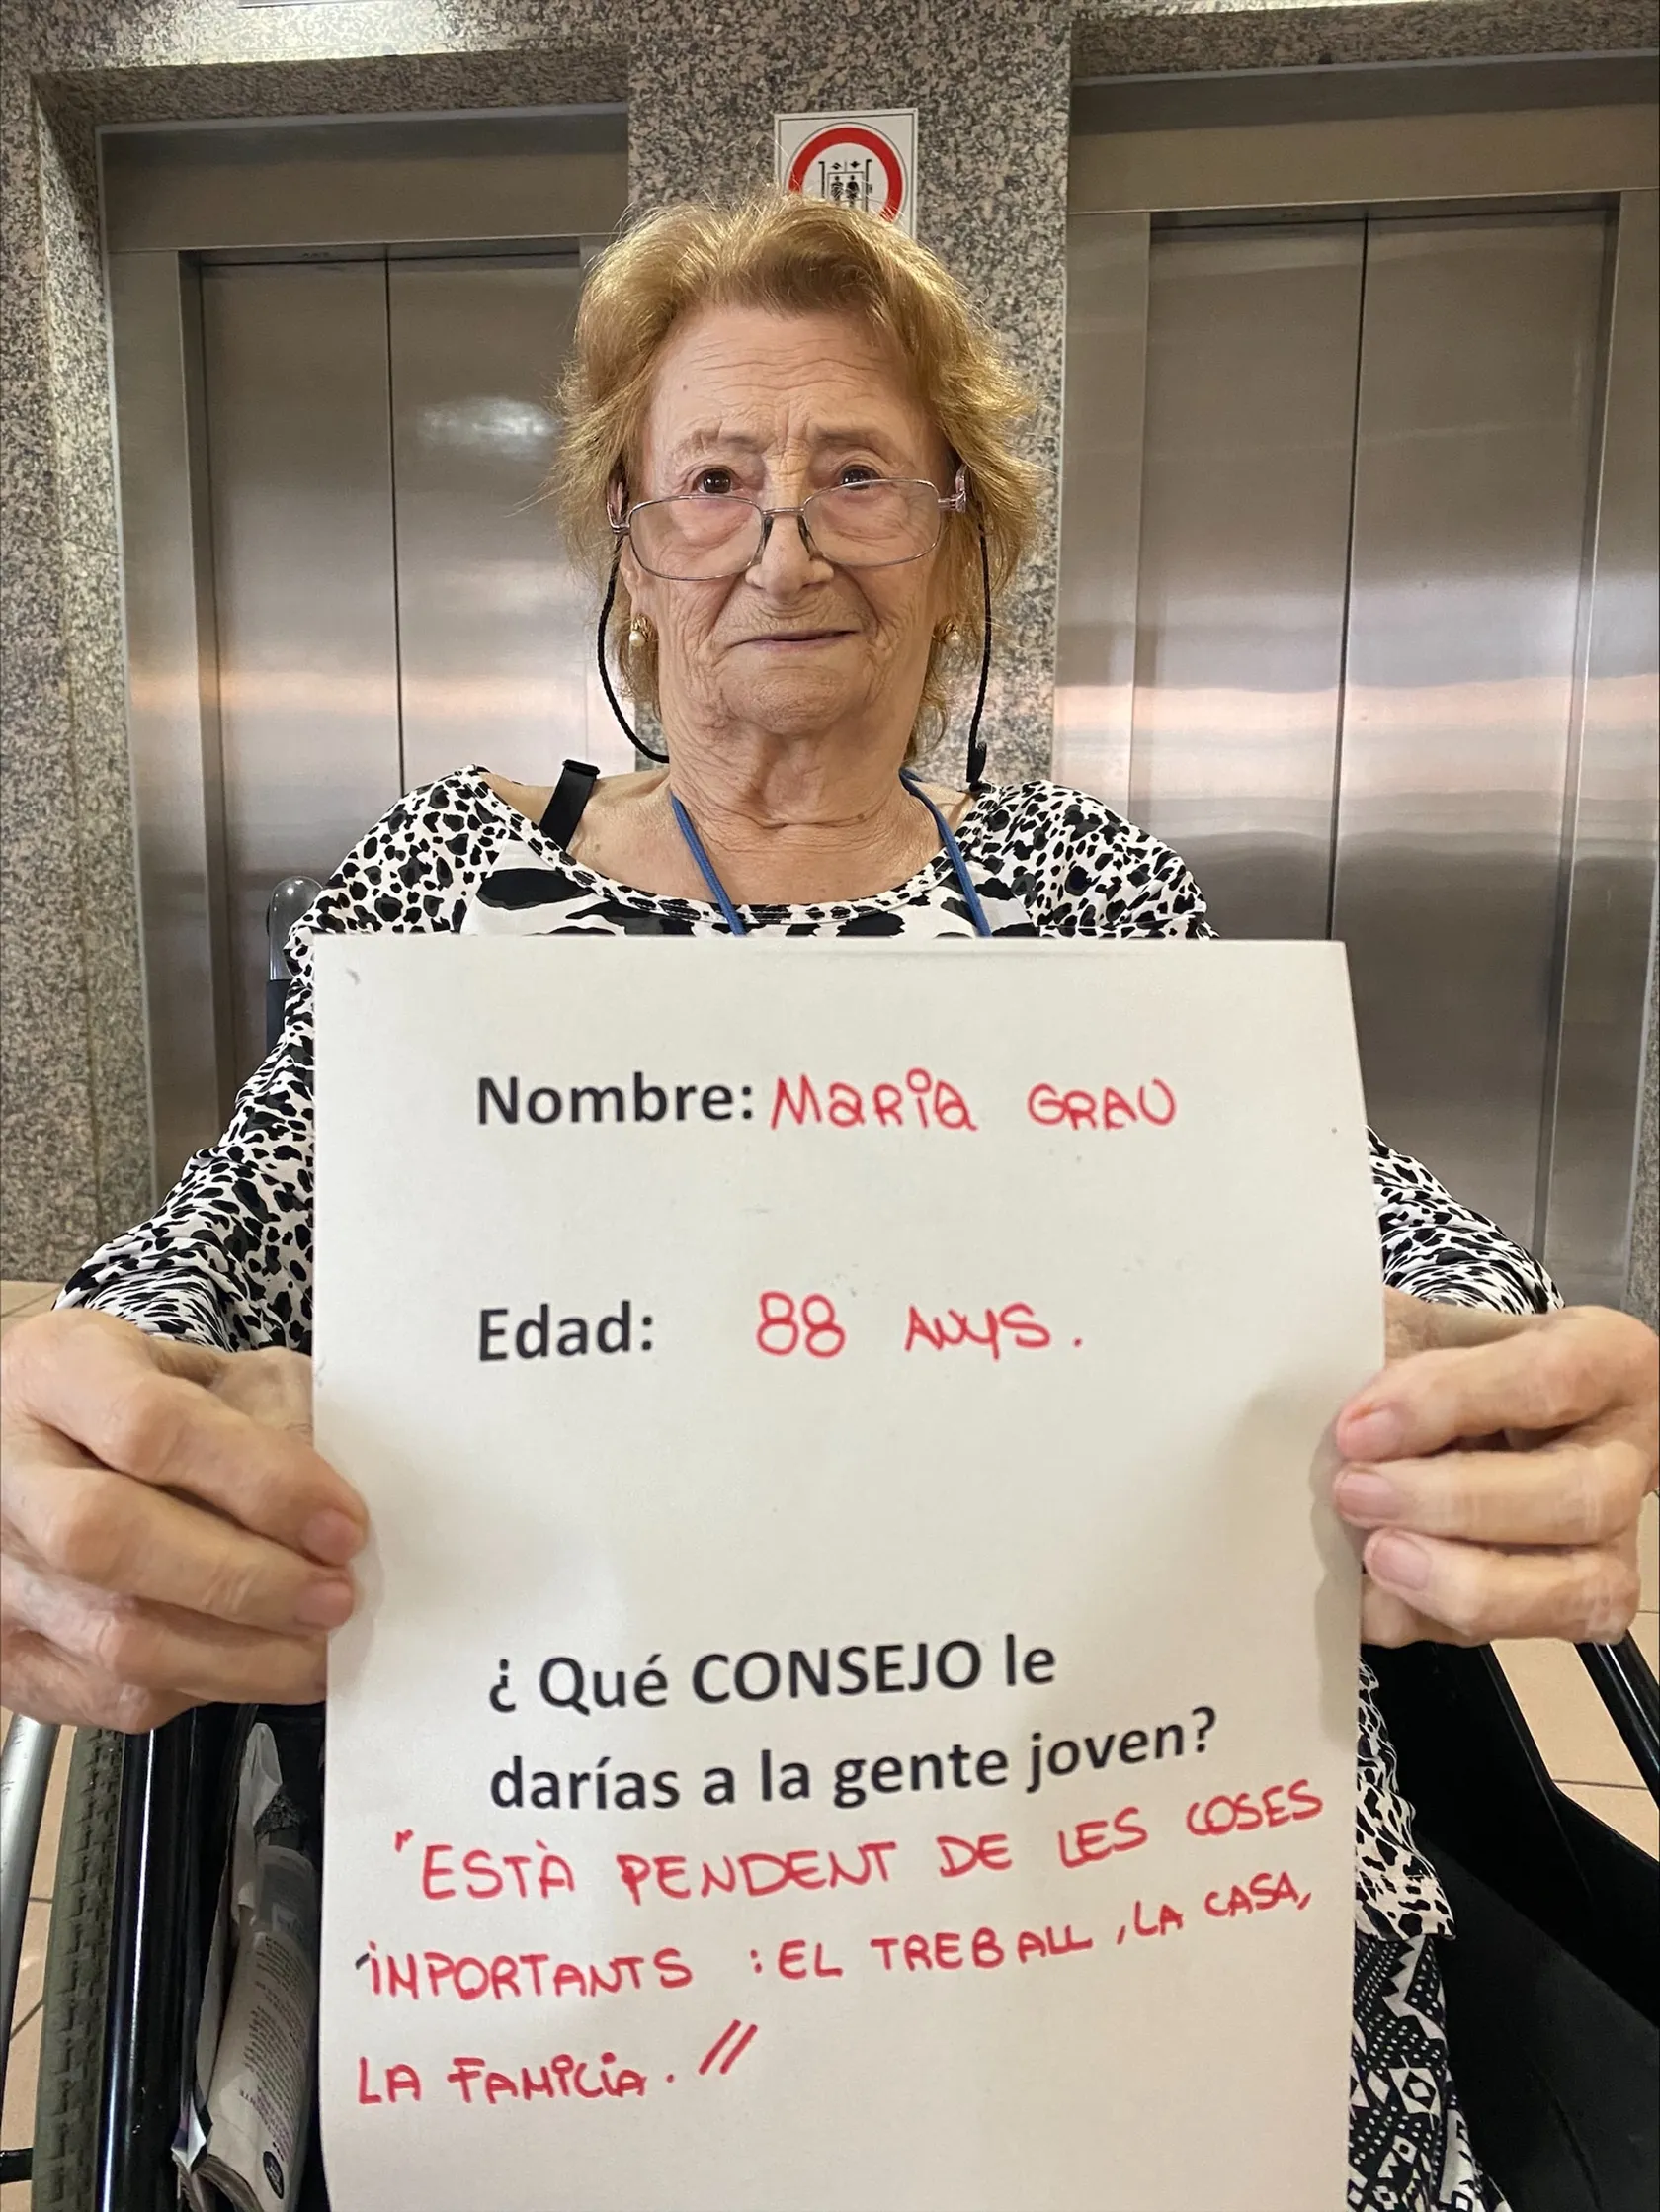 Nombre: MaRia GRAU
Edad: 88 ANYS.
¿ Qué CONSEJO le
darías a la gente joven?
"ESTÀ PENDENT DE LES COSES
IMPORTANTS : EL TREBALL, LA CASA,
LA FAMILIA. //